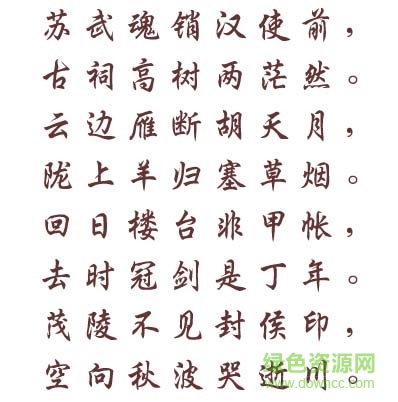 苏武魂销汉使前，
古祠高树两茫然。
云边雁断胡天月，
陇上羊归塞草烟。
回日楼台非甲帐，
去时冠剑是丁年。
茂陵不见封侯印，
空向秋波哭逝川。
绿色资源网
www.downcc.com